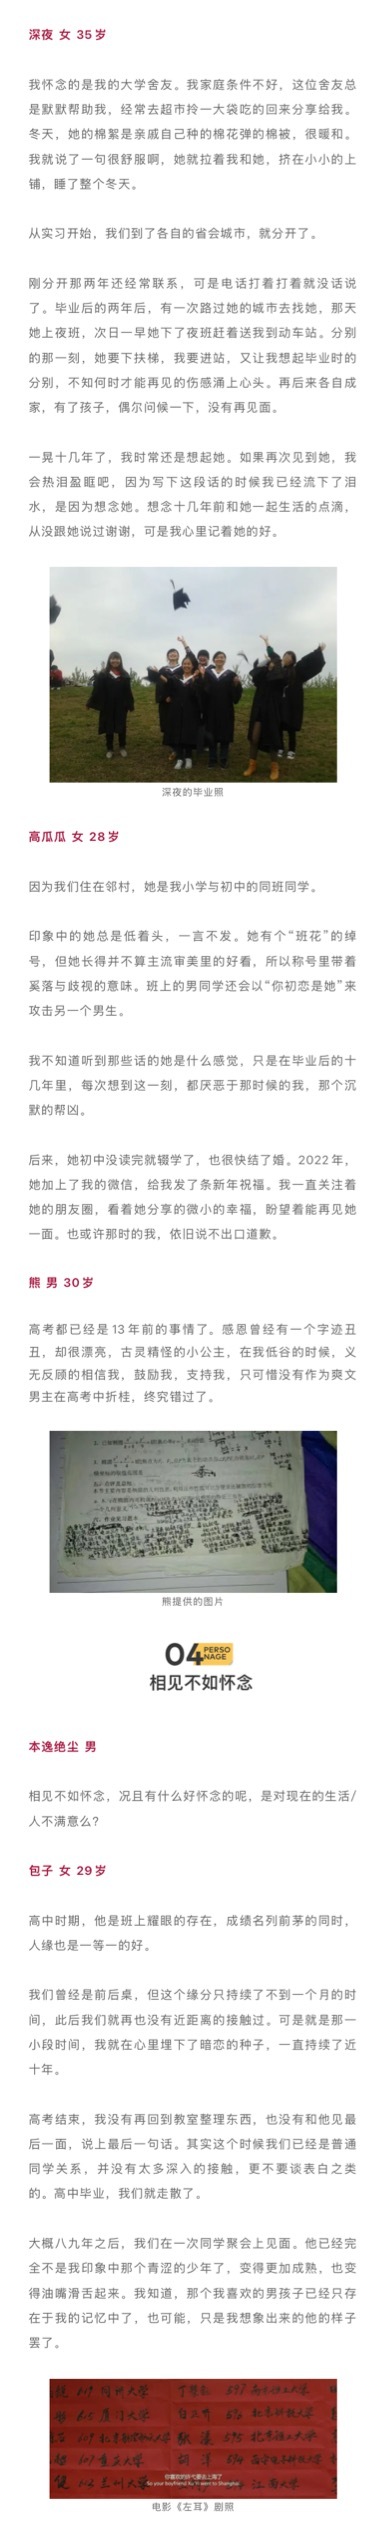 深夜 女 35岁
我怀念的是我的大学舍友。我家庭条件不好，这位舍友总
是默默帮助我，经常去超市拎一大袋吃的回来分享给我。
冬天，她的棉絮是亲戚自己种的棉花弹的棉被，很暖和。
我就说了一句很舒服啊，她就拉着我和她，挤在小小的上
铺，睡了整个冬天。
从实习开始，我们到了各自的省会城市，就分开了。
刚分开那两年还经常联系，可是电话打着打着就没话说
了。毕业后的两年后，有一次路过她的城市去找她，那天
她上夜班，次日一早她下了夜班赶着送我到动车站。分别
的那一刻，她要下扶梯，我要进站，又让我想起毕业时的
分别，不知何时才能再见的伤感涌上心头。再后来各自成
家，有了孩子，偶尔问候一下，没有再见面。
一晃十几年了，我时常还是想起她。如果再次见到她，我
会热泪盈眶吧，因为写下这段话的时候我已经流下了泪
水，是因为想念她。想念十几年前和她一起生活的点滴，
从没跟她说过谢谢，可是我心里记着她的好。
深夜的毕业照
高瓜瓜 女 28岁
因为我们住在邻村，她是我小学与初中的同班同学。
印象中的她总是低着头，一言不发。她有个“班花”的绰
号，但她长得并不算主流审美里的好看，所以称号里带着
奚落与歧视的意味。班上的男同学还会以“你初恋是她”来
攻击另一个男生。
我不知道听到那些话的她是什么感觉，只是在毕业后的十
几年里，每次想到这一刻，都厌恶于那时候的我，那个沉
默的帮凶。
后来，她初中没读完就辍学了，也很快结了婚。2022年，
她加上了我的微信，给我发了条新年祝福。我一直关注着
她的朋友圈，看着她分享的微小的幸福，盼望着能再见她
一面。也或许那时的我，依旧说不出口道歉。
熊 男 30岁
高考都已经是13年前的事情了。感恩曾经有一个字迹丑
丑，却很漂亮，古灵精怪的小公主，在我低谷的时候，义
无反顾的相信我，鼓励我，支持我，只可惜没有作为爽文
男主在高考中折桂，终究错过了。
熊提供的图片
04 PERSO
NAGE
相见不如怀念
本逸绝尘 男
相见不如怀念，况且有什么好怀念的呢，是对现在的生活/
人不满意么？
包子 女 29岁
高中时期，他是班上耀眼的存在，成绩名列前茅的同时，
人缘也是一等一的好。
我们曾经是前后桌，但这个缘分只持续了不到一个月的时
间，此后我们就再也没有近距离的接触过。可是就是那一
小段时间，我就在心里埋下了暗恋的种子，一直持续了近
十年。
高考结束，我没有再回到教室整理东西，也没有和他见最
后一面，说上最后一句话。其实这个时候我们已经是普通
同学关系，并没有太多深入的接触，更不要谈表白之类
的。高中毕业，我们就走散了。
大概八九年之后，我们在一次同学聚会上见面。他已经完
全不是我印象中那个青涩的少年了，变得更加成熟，也变
得油嘴滑舌起来。我知道，那个我喜欢的男孩子已经只存
在于我的记忆中了，也可能，只是我想象出来的他的样子
罢了。
你喜欢的许弋要去上海了
So your boyfriend Xu Yi went to Shanghai
电影《左耳》剧照